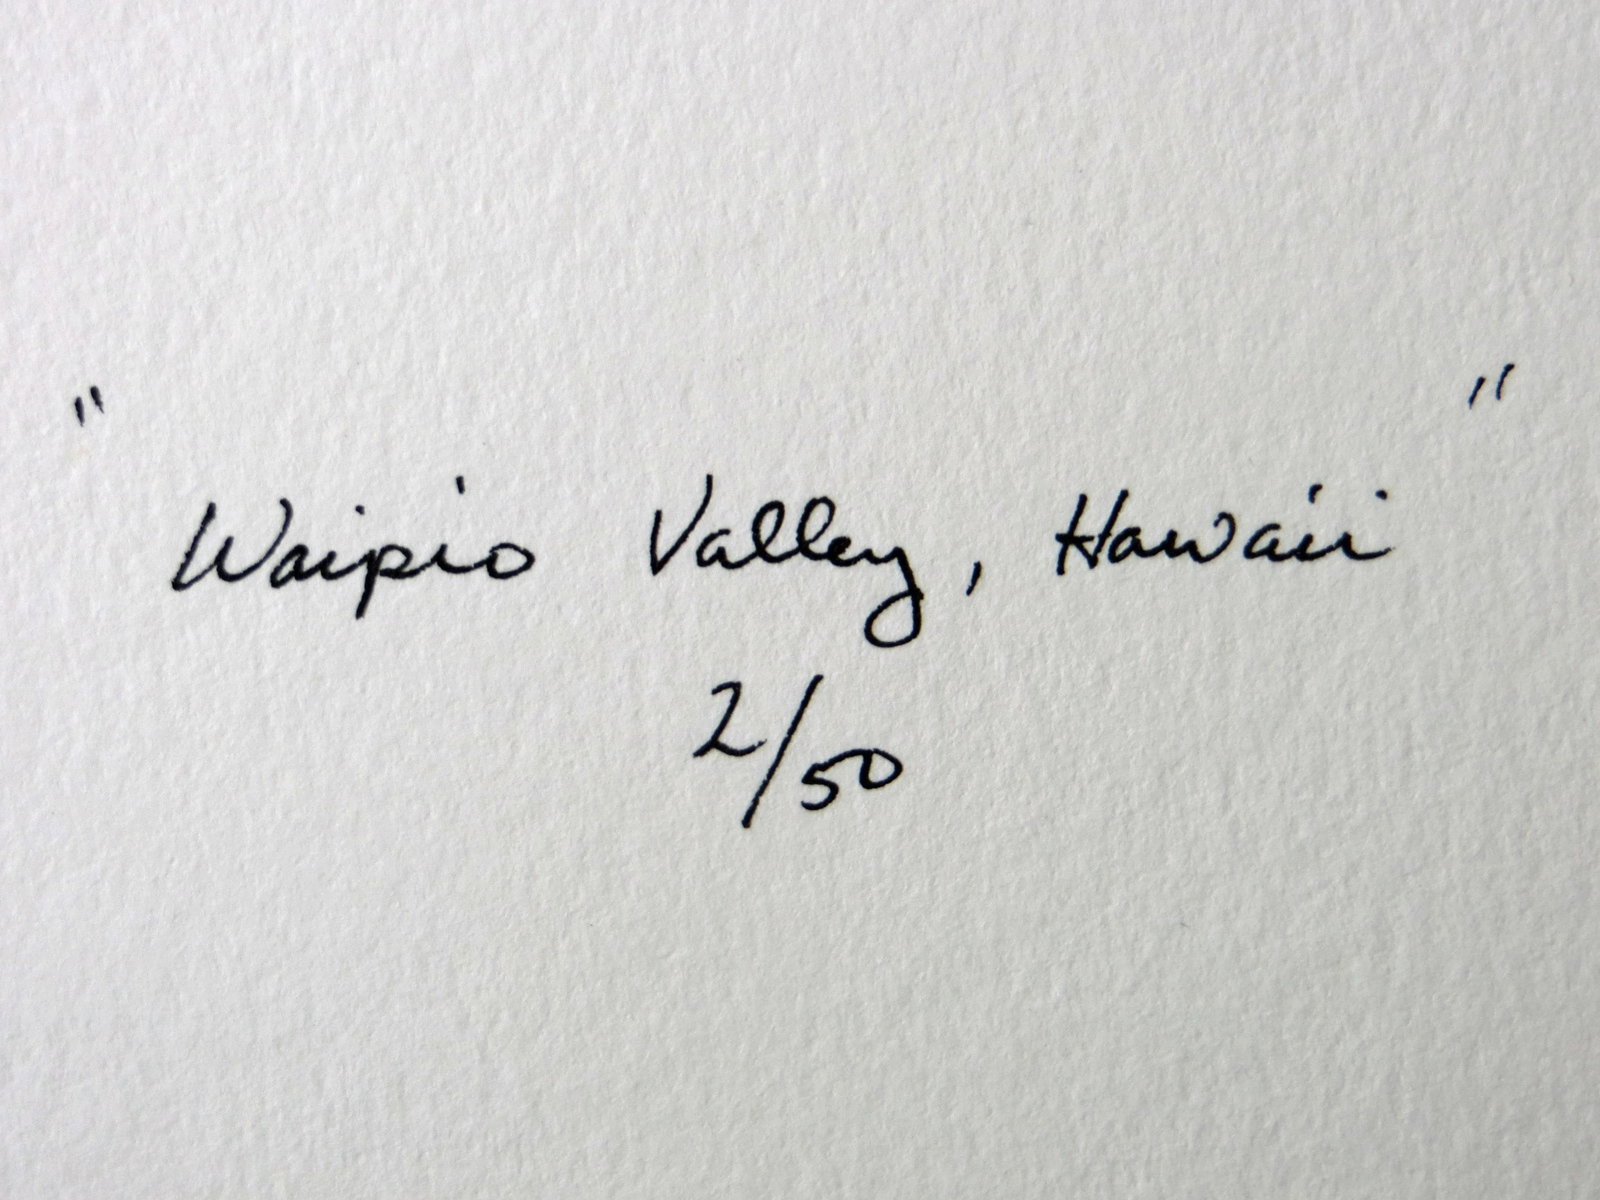 "Waipio Valley, Hawaii"
2/50